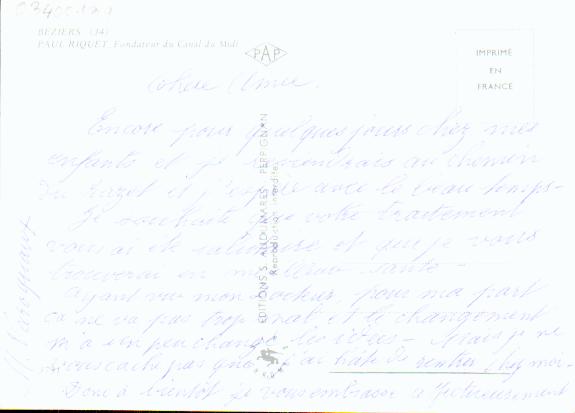 BEZIERS (34)
PAUL RIQUET, Fondateur du Canal du Midi
PAP
IMPRIMÉ
EN
FRANCE
Chère Amie.
Encore pour quelques jours chez mes
enfants et je reprendrais au chemin
du et j'espère avec le beau temps -
Je souhaite que votre traitement
vous ai été salutaire et que je vous
trouverai en meilleure santé -
Ayant vu mon docteur, pour ma part
ça ne va pas trop mal et le changement
m'a un peu changé les idées - Mais je ne
vous cache pas que j'ai hâte de rentrer chez moi -
Donc à bientôt je vous embrasse affectueusement
EDITIONS S. AUX PERPIGNAN
Reproduction interdite